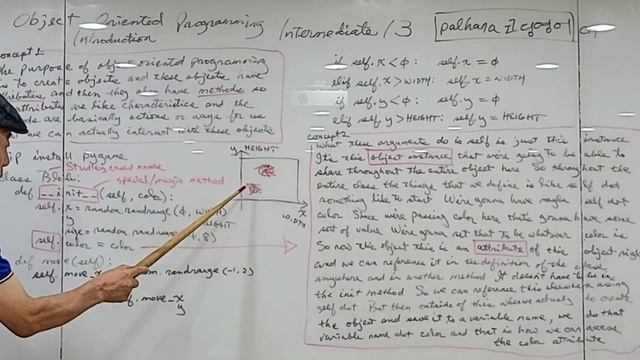 Object Oriented Programming Intermediate /3
Introduction
palhana
concept 1
The purpose of object oriented programming
is to create objects and these objects have
attributes and then they also have methods so
attributes are like characteristics and the
are basically actions or ways for us
we can actually interact with these objects
pip install pygame
Strictly
special/magic method
class Blob:
def __init__(self, color):
self.x = random.randrange(φ, WIDTH)
y HEIGHT
size = random.randrange(4,8)
self.color = color
def move(self):
self.move_x = random.randrange(-1,2)
self.move_x
y
y HEIGHT
x
WIDTH
if self.x < φ: self.x = φ
elif self.x > WIDTH: self.x = WIDTH
if self.y < φ: self.y = φ
elif self.y > HEIGHT: self.y = HEIGHT
concept2
What this argument do is self is just this instance
It's this object instance that were going to be able to
share throughout the entire object here So throughout the
entire class the things that we define is like self dot
something like to start We're gonna have maybe self dot
color Since were passing color here that's gonna have some
sort of value We're gonna set that to be whatever color is
So now the object this is an attribute of this object right
and we can reference it in the definition of the class
anywhere and in another method It doesn't have to be in
the init method So we can reference this elsewhere using
self dot But then outside of this where we actually to create
the object and save it to a variable name, we do that
variable name dot color and that is how we can access
the color attribute